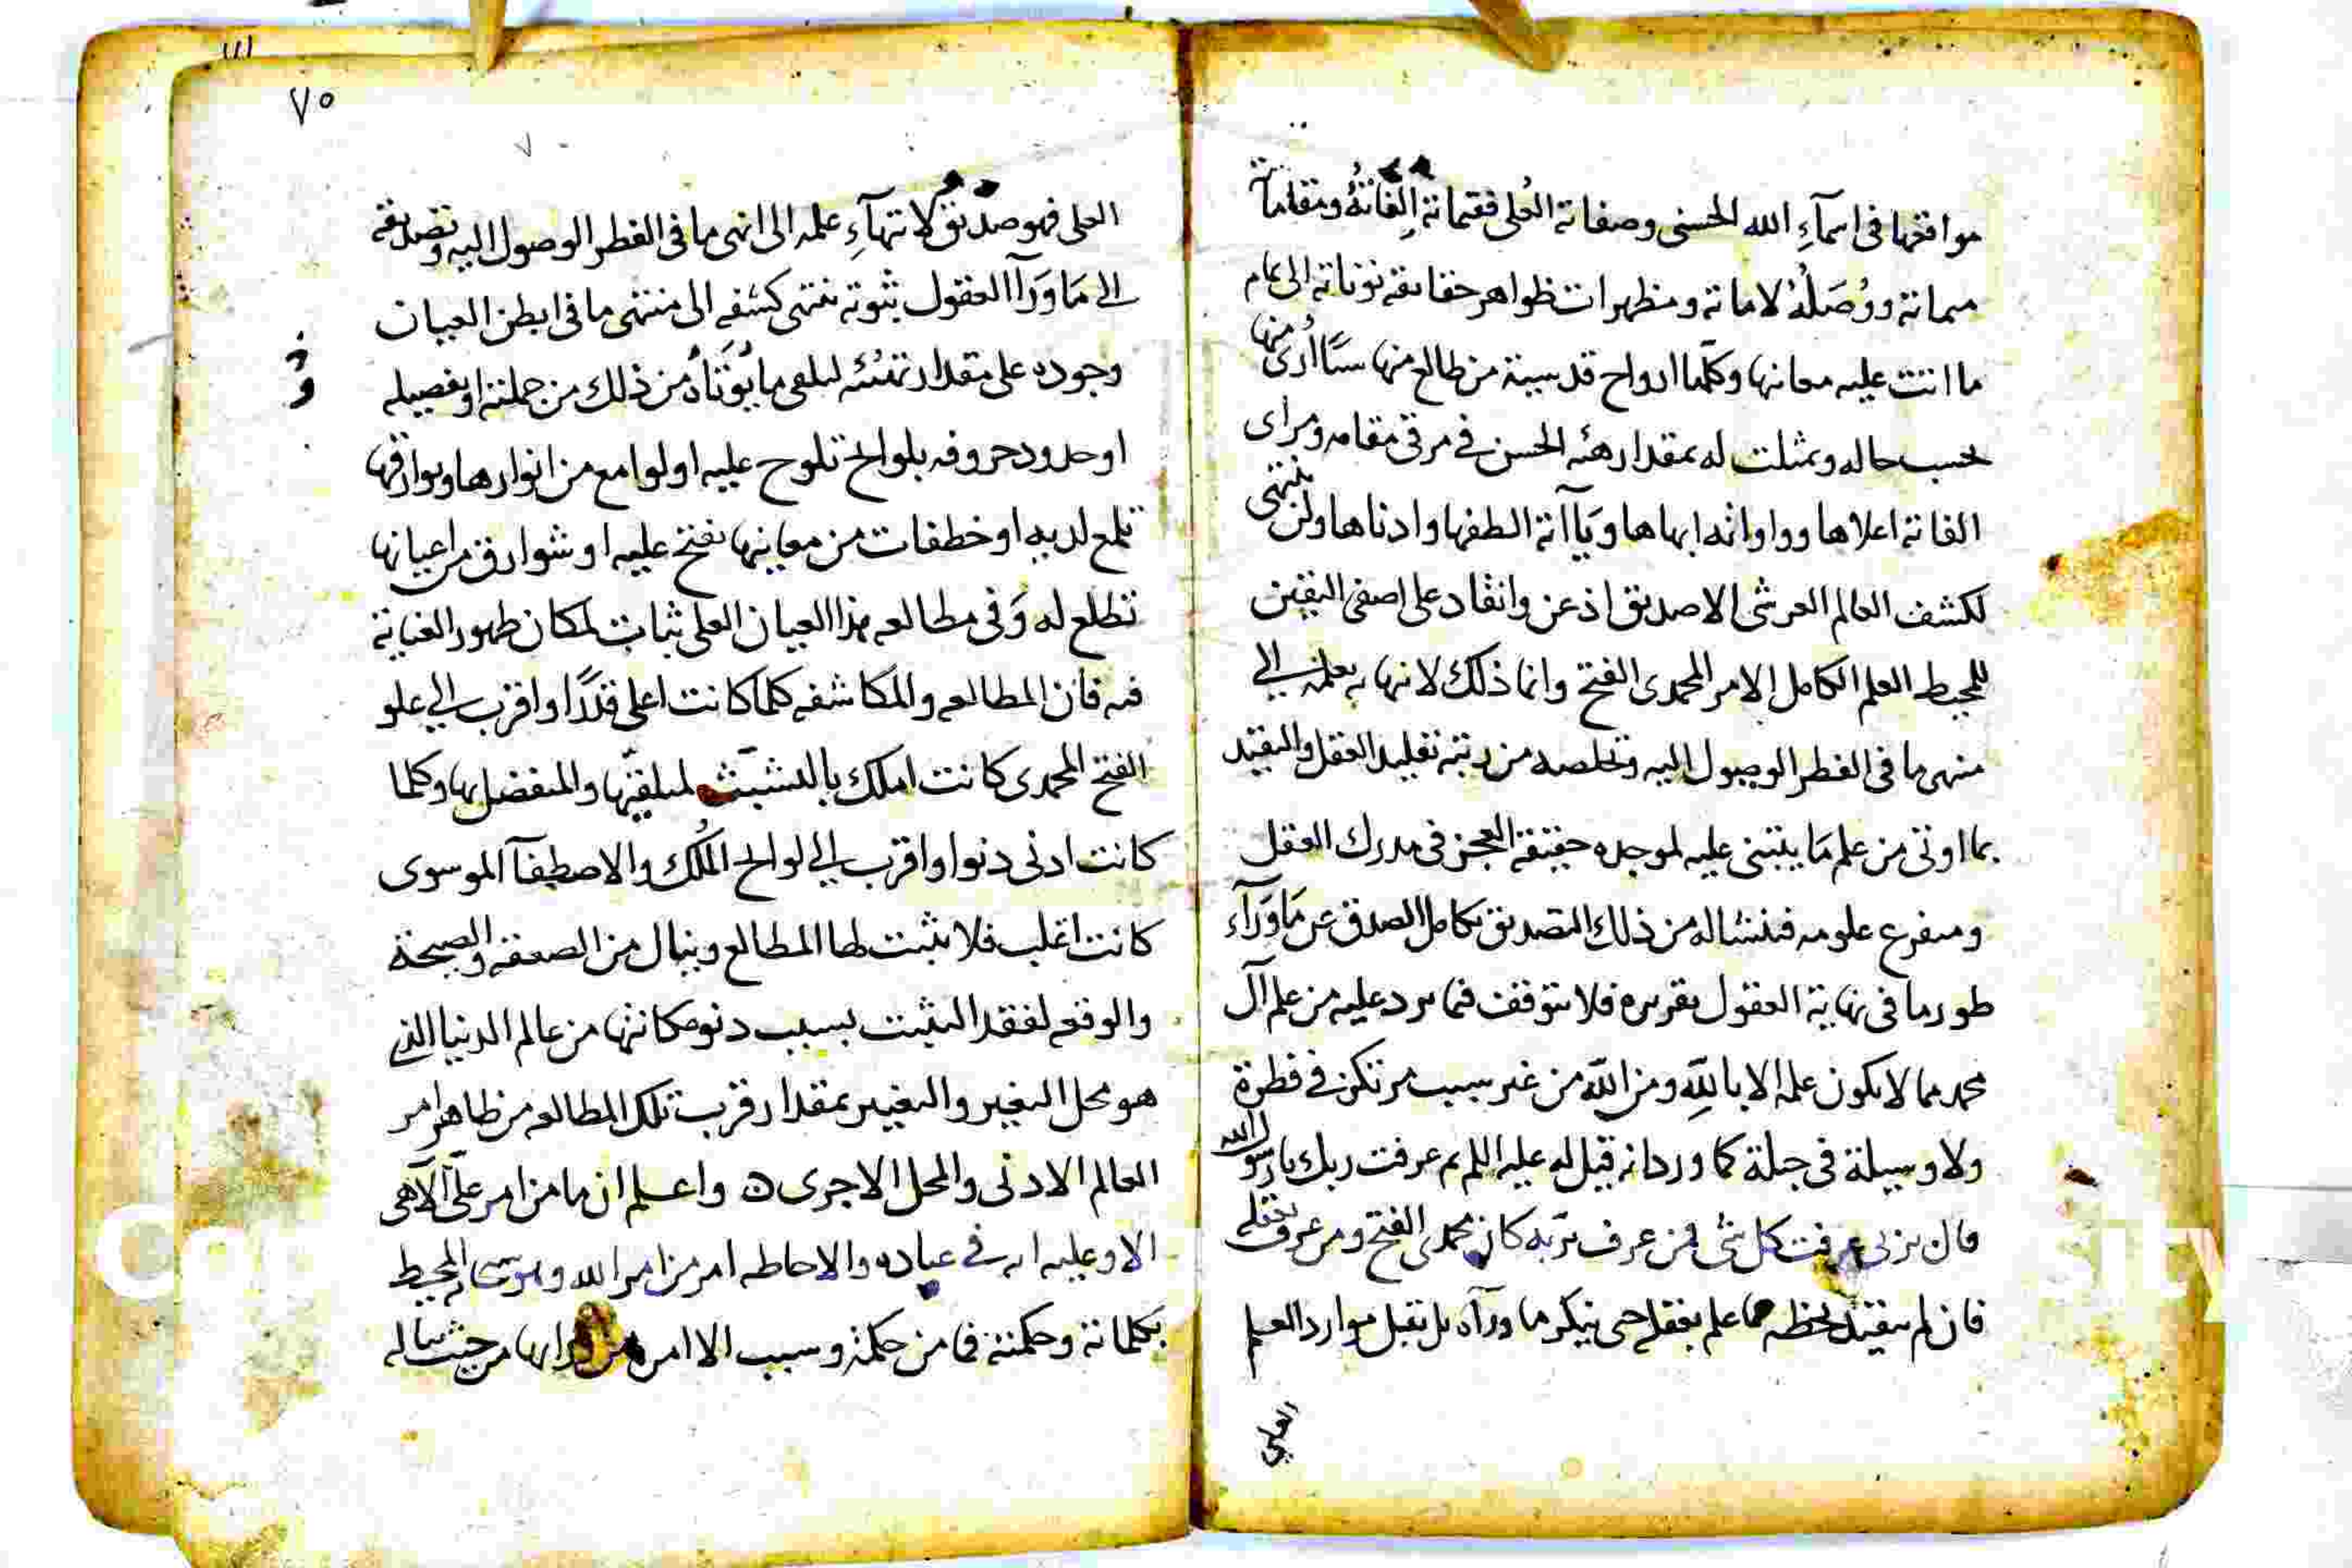 مواقعها في اسمآءِ الله الحسنى وصفاته العُلى فقيماته الِفاتهُ ومقاماته
ميماته ووُصَلُهُ لاماته ومظهرات ظواهر حقايقه نوناته الى تمام
ما انتت عليه معانيها وكلّما ارواح قدسية من طالع منها سنًا اُرى منها
بحسب حاله وتمثلت له بمقدار هيئه الحسن في مرقى مقامه ومراى
الفاته اعلاها وواواته ابهاها ويَآاته الطفها وادناها ولن ينتهى
لكشف العالم العرشى الا صديق اذعن وانقاد على اصفى اليقين
للمحيط العلم الكامل الامر المحمدى الفتح وانما ذلك لانهايه بعلمه الى
منتهى ما في الفطر الوصول اليه وتخلصه من ربقة تقليد العقل والتقيد
بما اوتى من علم مَا يبتنى عليه لموجده حقيقة العجز في مدرك العقل
ومتفرع علومه فينشا له من ذلك التصديق بكامل الصدق عن مَا وَرآء
طور ما في نهاية العقول تقريره فلا يتوقف فيما يرد عليه من علم آل
محمد مما لا يكون علمه الا باللّه ومن اللّه من غير سبب مرتكز في فطرة
ولا وسيلة في جبلة كما ورد انه قيل له عليه السلم بم عرفت ربك يا رسول الله
قال بربى عرفت كل شى فمن عرف بربه كان محمدى الفتح ومن عرف بعقله
فان لم يتقيد لحظه مما علم بعقله حتى ينكر ما ورآه بل يقبل موارد العلم
العلى
٧٥
العلى فهو صديق لانتهآءِ علمه الى انهى ما في الفطر الوصول اليه وتصديقه
الى مَا وَرَآ العقول بثبوته ينتهى كشفه الى منتهى ما في ابطن العيان
وجوده على مقدار تهيئه لتلقى ما يُؤتَاهُ من ذلك من جملته او تفصيله
او حدود حروفه بلوائح تلوح عليه او لوامع من انوارها وبوارقها
تلمع لديه او خطفات من معاينها تفتح عليه او شوارق من اعيانها
تطلع له وَفي مطالعه هذا العيان العلى ثبات لمكان ظهور العناية
فيه فان المطالعه والمكاشفه كلما كانت اعلى قدرًا واقرب الى علو
الفتح المحمدى كانت املك بالتثبّت لمتلقيّها والمتفضل بها وكلما
كانت ادنى دنوا واقرب الى لوائح المُلك والاصطفآ الموسوى
كانت اغلب فلا يثبت لها المطالع وينال من الصعقه والصيحة
والوقع لفقد التثبت بسبب دنو مكانتها من عالم الدنيا الذى
هو محل التغير والتغيير بمقدار قرب تلك المطالعه من ظاهر امر
العالم الادنى والمحل الاجرى ن واعلم ان ما من امر علىّ الاهى
الا وعليه ايه في عباده والاحاطه امر من امر الله المحيط
بكلماته وحكمته فما من حكمة وسبب الا امره من حيث ساله